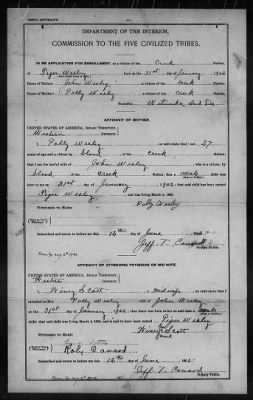 BIRTH AFFIDAVIT.
DEPARTMENT OF THE INTERIOR,
COMMISSION TO THE FIVE CIVILIZED TRIBES.
IN RE APPLICATION FOR ENROLLMENT, as a citizen of the Creek Nation,
of Wesley, born on the 31st day of January, 1902
Name of Father: John Wesley a citizen of the Creek Nation.
Name of Mother: Polly Wesley a citizen of the Creek Nation.
Postoffice Wetumka, Ind Ter
AFFIDAVIT OF MOTHER.
UNITED STATES OF AMERICA, Indian Territory,
Western District.
I, Polly Wesley, on oath state that I am 27
years of age and a citizen by blood, of the Creek Nation;
that I am the lawful wife of John Wesley, who is a citizen, by
blood of the Creek Nation; that a male child was
born to me on 31st day of January, 1902, that said child has been named
Wesley, and was living March 4, 1905.
Polly Wesley
WITNESSES TO MARK:
Subscribed and sworn to before me this 12th day of June, 1905.
Jeff T. Canard
Notary Public.
AFFIDAVIT OF ATTENDING PHYSICIAN OR MID-WIFE.
UNITED STATES OF AMERICA, Indian Territory,
Western District.
I, Scott, a midwife, on oath state that I
attended on Mrs. Polly Wesley, wife of John Wesley
on the 31st day of January, 1902; that there was born to her on said date a male
child; that said child was living March 4, 1905, and is said to have been named
Wesley
Scott
WITNESSES TO MARK:
Roly Canard
Subscribed and sworn to before me this 12th day of June, 1905.
Jeff T. Canard
Notary Public.